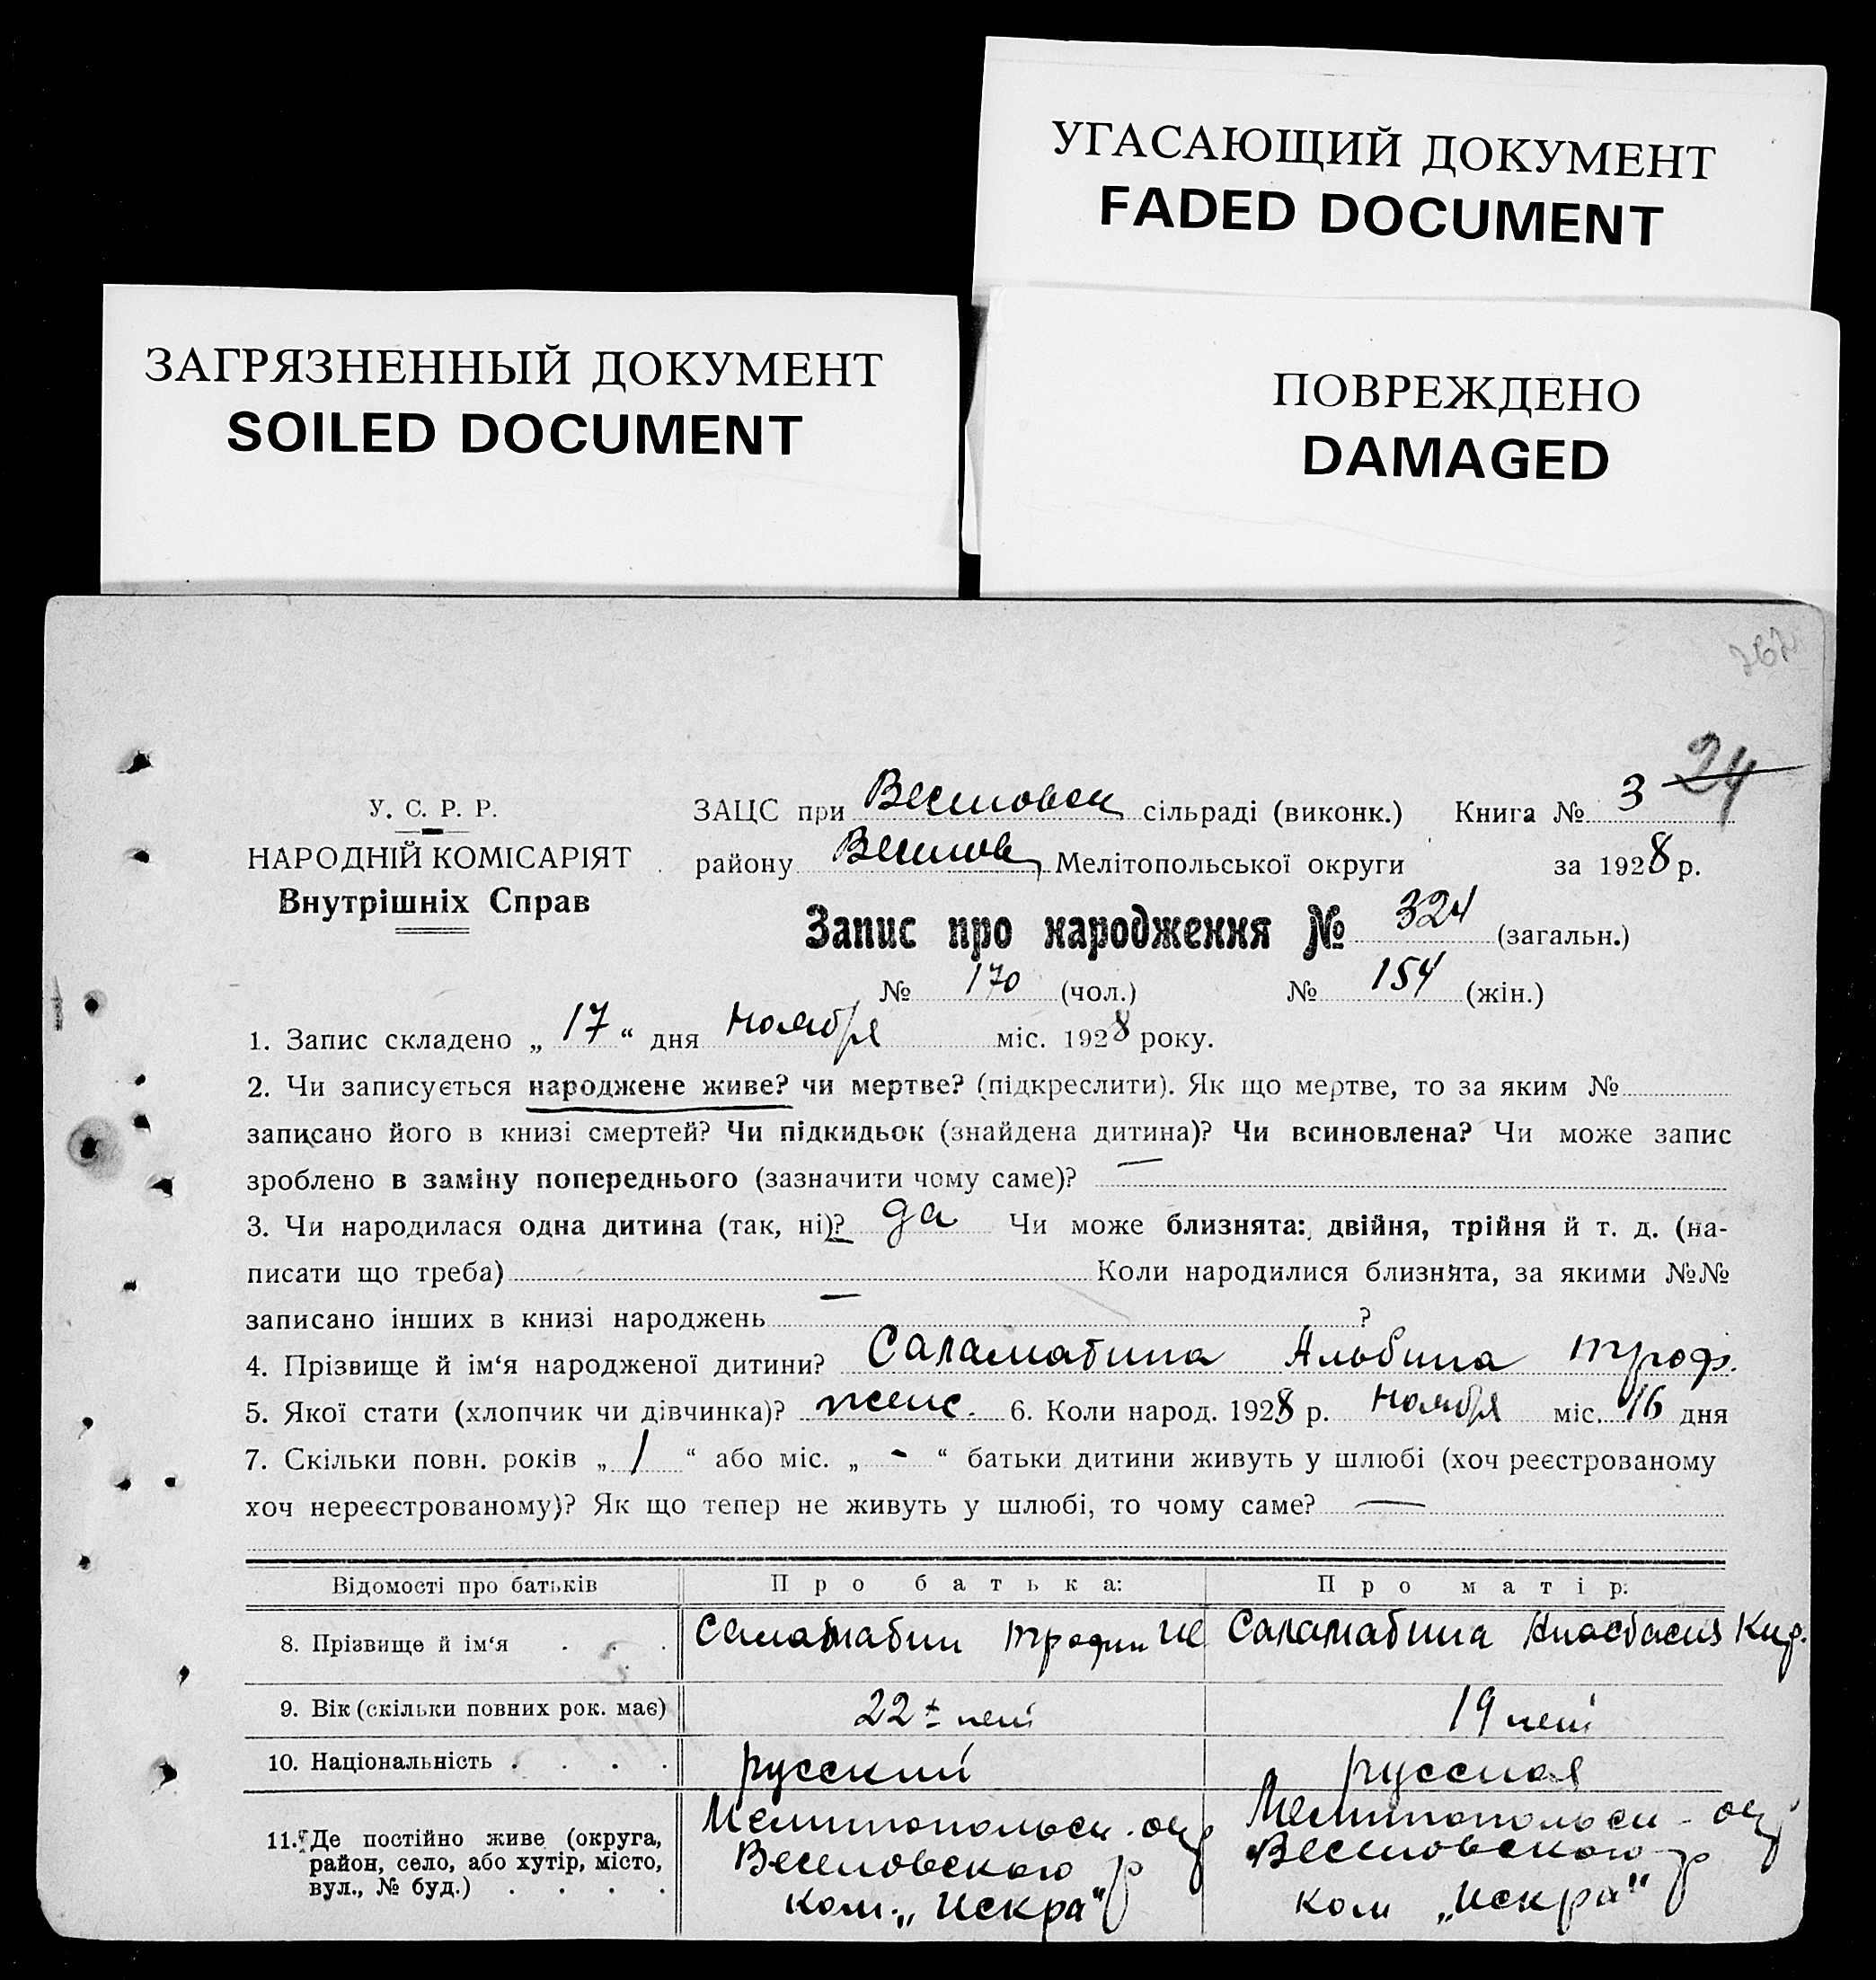 УГАСАЮЩИЙ ДОКУМЕНТ
FADED DOCUMENT
ЗАГРЯЗНЕННЫЙ ДОКУМЕНТ
SOILED DOCUMENT
ПОВРЕЖДЕНО
DAMAGED
24
У. С. Р. Р.
НАРОДНІЙ КОМІСАРІЯТ
Внутрішніх Справ
ЗАЦС при Веселовск сільраді (виконк.) Книга № 3
району Веселов Мелітопольської округи за 1928 р.
Запис про народження № 324 (загальн.)
№ 170 (чол.) № 154 (жін.)
1. Запис складено „ 17 “ дня ноября міс. 1928 року.
2. Чи записується народжене живе? чи мертве? (підкреслити). Як що мертве, то за яким №
записано його в книзі смертей? Чи підкидьок (знайдена дитина)? Чи всиновлена? Чи може запис
зроблено в заміну попереднього (зазначити чому саме)? —
3. Чи народилася одна дитина (так, ні)? да Чи може близнята: двійня, трійня й т. д. (на-
писати що треба) Коли народилися близнята, за якими №№
записано інших в книзі народжень — ?
4. Прізвище й ім‘я народженої дитини? Саламатина Альбина Троф.
5. Якої стати (хлопчик чи дівчинка)? женс. 6. Коли народ. 1928 р. ноября міс. 16 дня
7. Скільки повн. років „ 1 “ або міс. „ - “ батьки дитини живуть у шлюбі (хоч реєстрованому
хоч нереєстрованому)? Як що тепер не живуть у шлюбі, то чому саме? —
Відомості про батьків Про батька: Про матір:
8. Прізвище й ім‘я . . . Саламатин Трофим Саламатина Анастасия Кир.
9. Вік (скільки повних рок. має) 22 лет 19 лет
10. Національність . . . . русский русская
11. Де постійно живе (округа,
район, село, або хутір, місто,
вул., № буд.) . . . .
Мелитопольск. окр
Веселовского р
ком. „Искра“
Мелитопольск - окр
Веселовского р
ком „Искра“